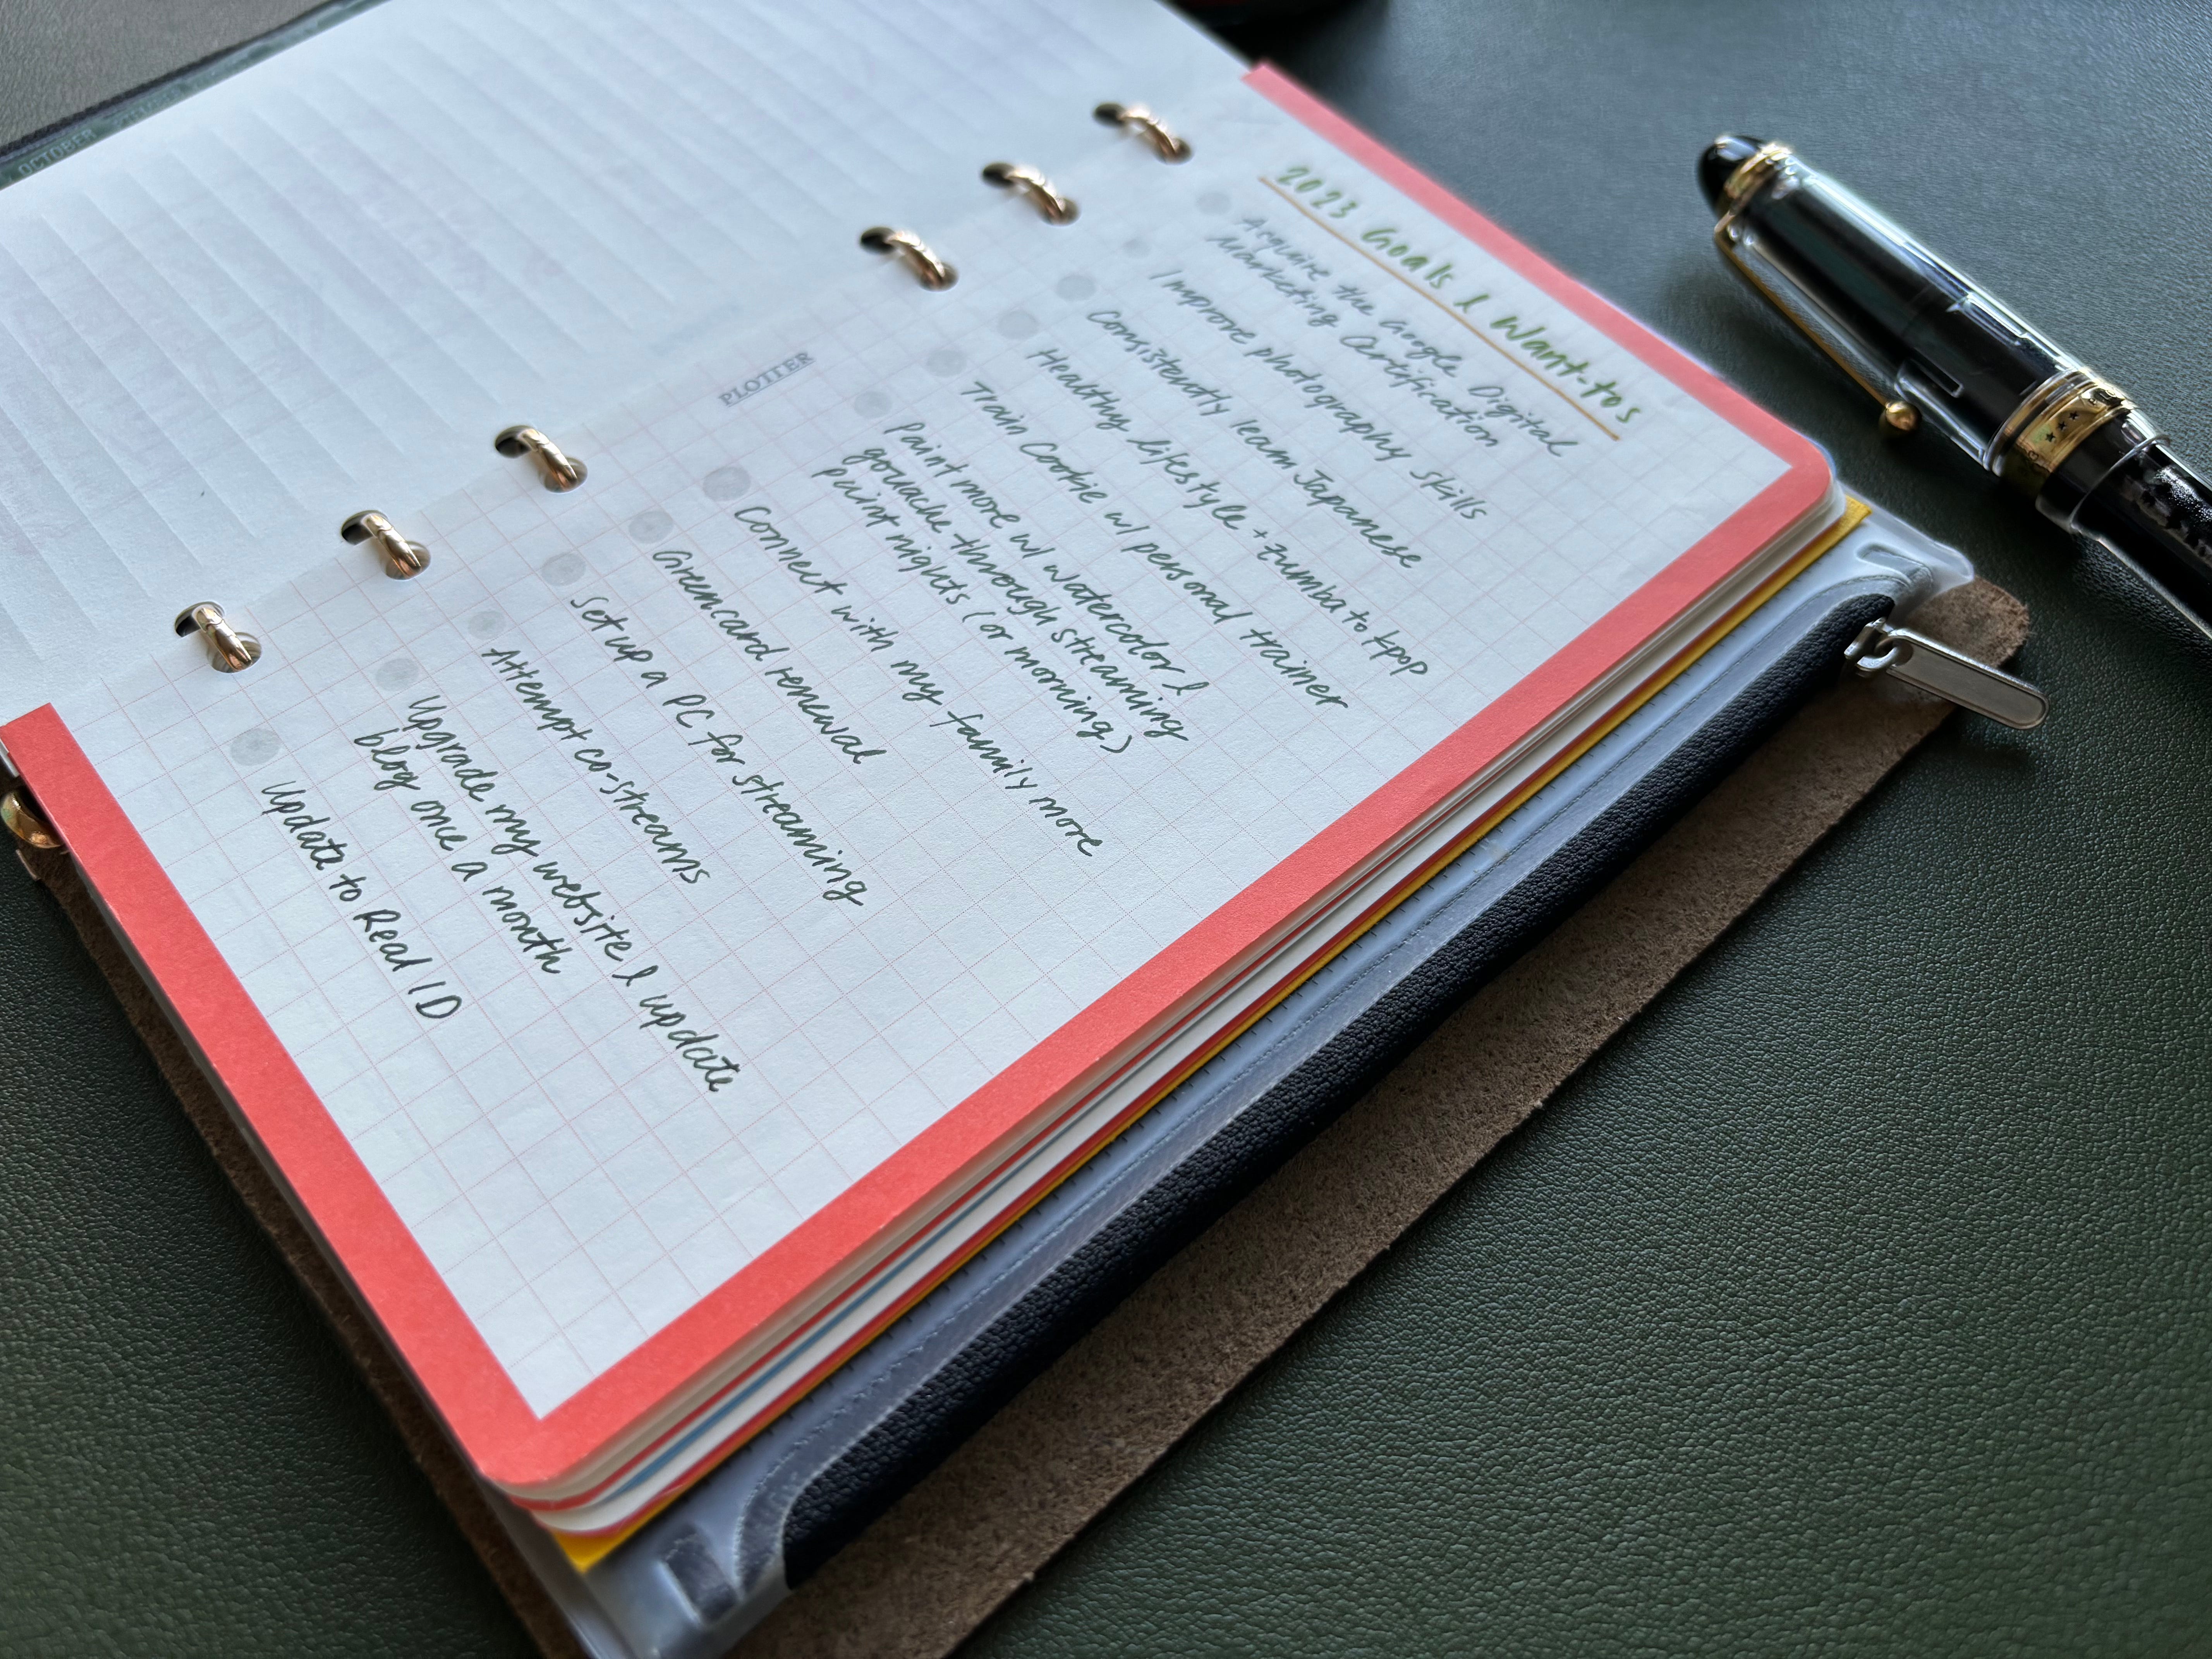 OCTOBER
PLOTTER
2023 Goals & Want-tos
Acquire the Google Digital
Marketing Certification
Improve photography skills
Consistently learn Japanese
Healthy lifestyle + zumba to kpop
Train Cookie w/ personal trainer
Paint more w/ watercolor &
gouache through streaming
paint nights (or mornings)
Connect with my family more
Greencard renewal
Set up a PC for streaming
Attempt co-streams
Upgrade my website & update
blog once a month
Update to Real ID